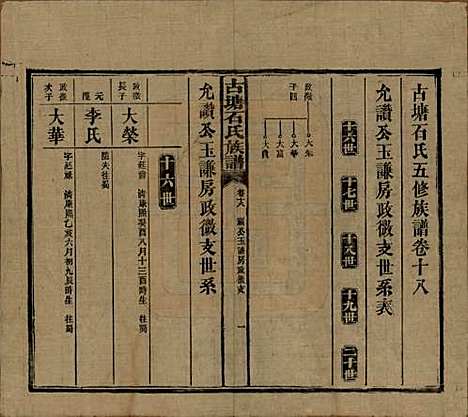 古塘石氏五修族譜卷十八
允讚公玉謙房政徵支世系表
十六世 十七世 十八世 十九世 二十世
政徵
子四
大榮
大華
大富
大貴
古塘石氏族譜
卷十八
允讚公玉謙房政徵支世系
十六世
政徵
長子
大榮
字 清康熙癸酉八月十三酉時生 往蜀
元
李氏
隨夫往蜀
政徵
次子
大華
字 清康熙乙亥六月初九辰時生 往蜀